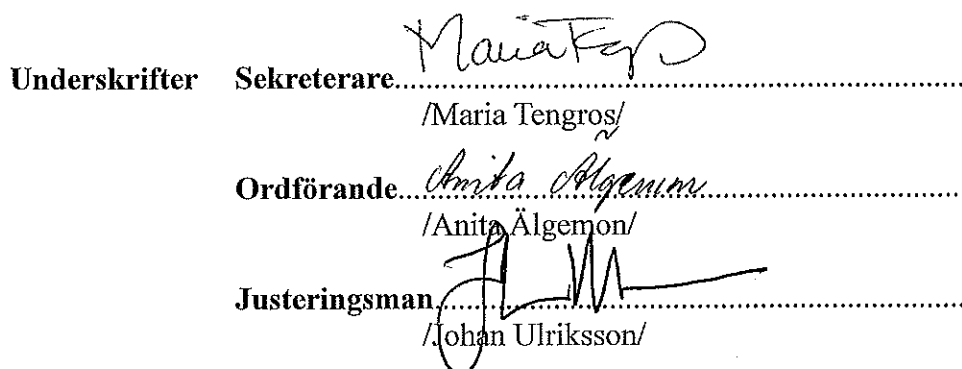 Underskrifter Sekreterare..........Maria
/Maria Tengros/
Ordförande..........Anita Älgemon
/Anita Älgemon/
Justeringsman..........
/Johan Ulriksson/